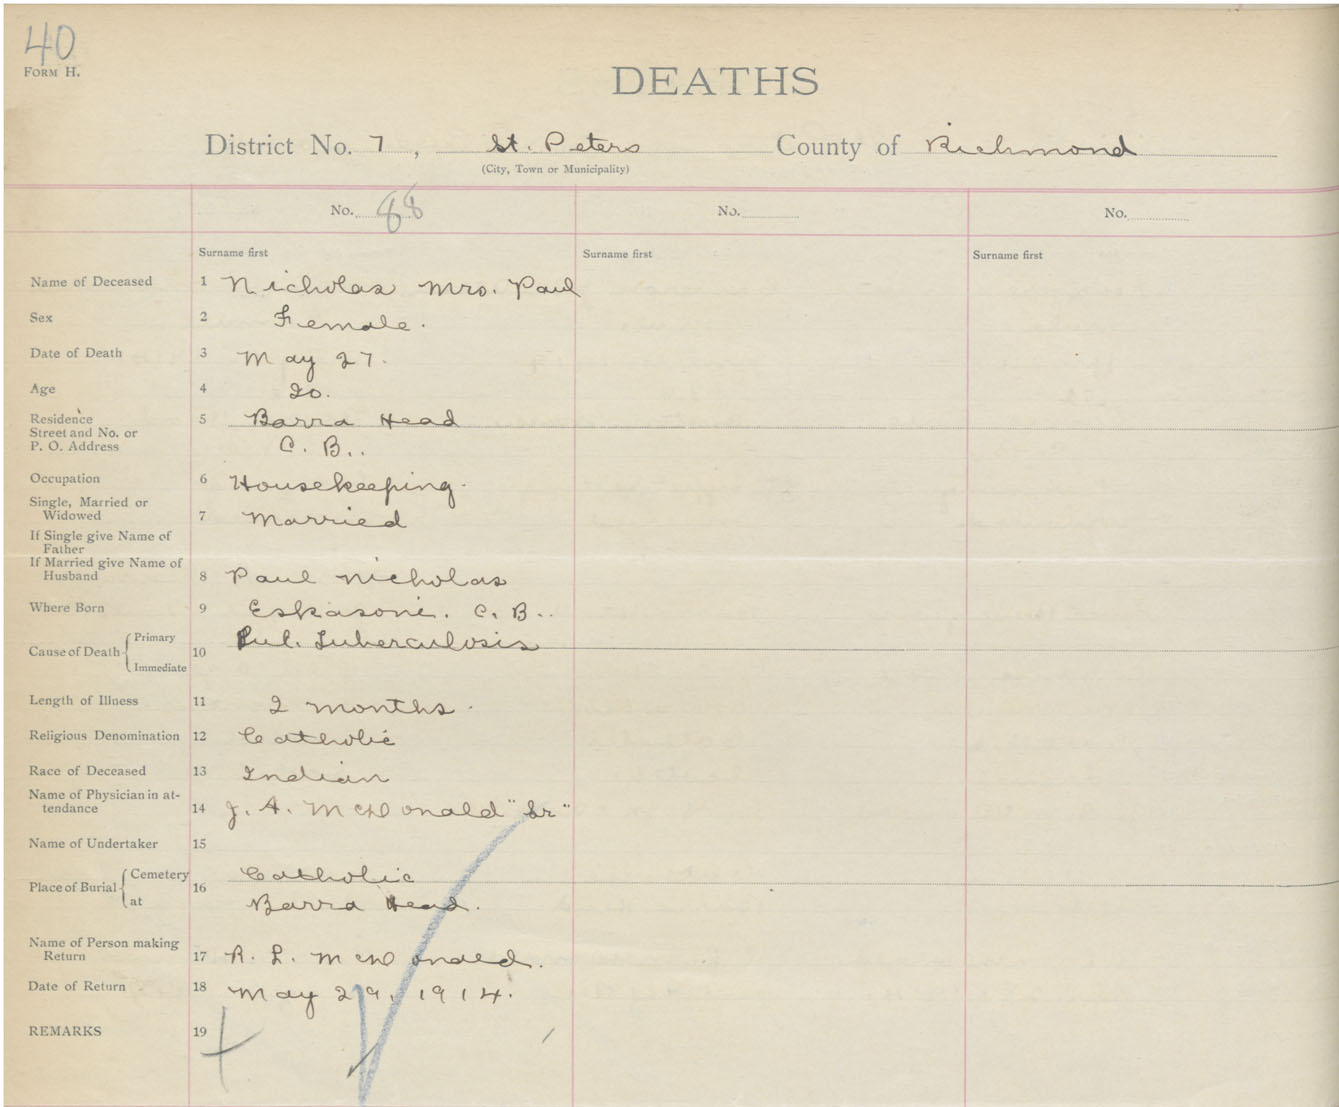 40
FORM H.
DEATHS
District No. 7, St. Peters County of Richmond
(City, Town or Municipality)
No. 88 No. No.
Surname first Surname first Surname first
Name of Deceased 1 Nicholas Mrs. Paul
Sex 2 Female.
Date of Death 3 May 27.
Age 4 20.
Residence 5 Barra Head
Street and No. or
P. O. Address C. B..
Occupation 6 Housekeeping.
Single, Married or
Widowed 7 Married
If Single give Name of
Father
If Married give Name of
Husband 8 Paul Nicholas
Where Born 9 Eskasoni. C. B..
Cause of Death { Primary 10 Pul. Tuberculosis
Immediate
Length of Illness 11 2 months.
Religious Denomination 12 Catholic
Race of Deceased 13 Indian
Name of Physician in at-
tendance 14 J. A. McDonald "Sr"
Name of Undertaker 15
Place of Burial { Cemetery 16 Catholic
at Barra Head.
Name of Person making
Return 17 R. L. McDonald.
Date of Return 18 May 29, 1914.
REMARKS 19